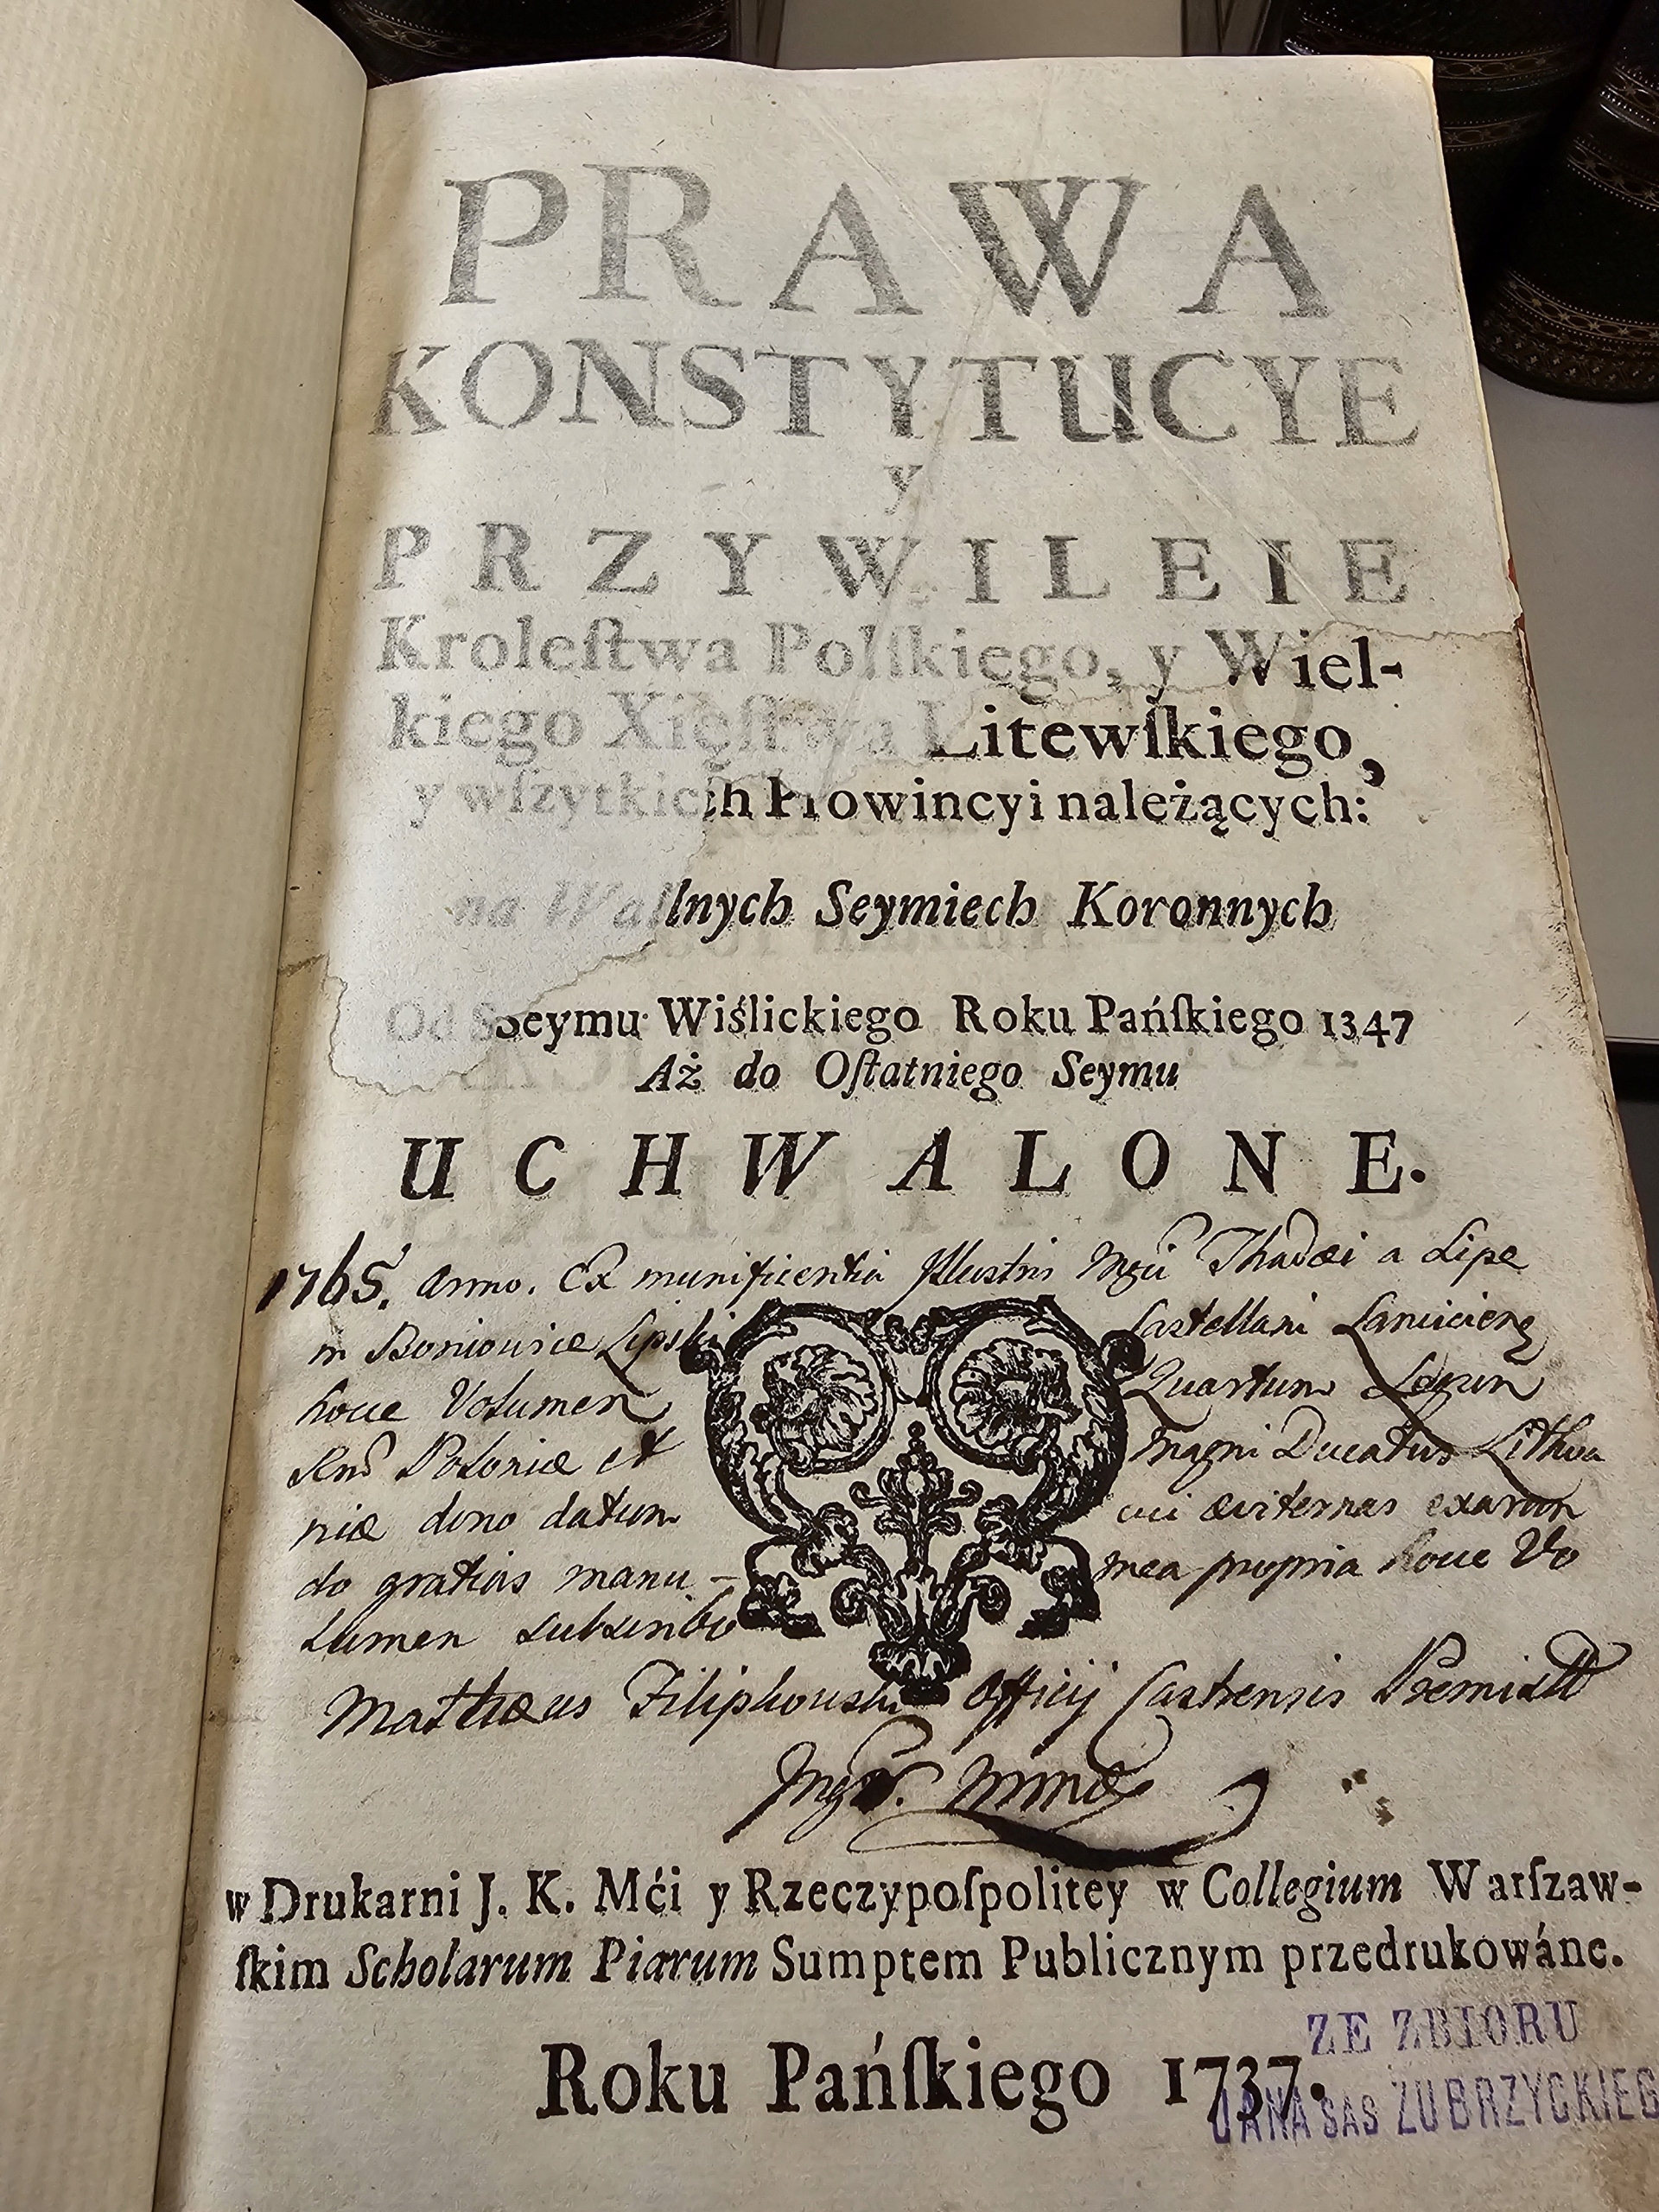 PRAWA
KONSTYTUCYE
y
PRZYWILEIE
Kroleſtwa Polſkiego, y Wiel-
kiego Xięſtwa Litewſkiego,
y wſzytkich Prowincyi należących:
na Wallnych Seymiech Koronnych
Od Seymu Wiślickiego Roku Pańſkiego 1347
Aż do Oſtatniego Seymu
UCHWALONE.
1765. Anno. Ex munificentia Illustris Mgci Thadæi a Lipe
in Boniowice Lipski Castellani
hocce Volumen Quartum Legum
Regni Poloniæ et Magni Ducatus Lithua
niæ dono datum cui æviternas exaran
do gratias manu - mea propria hocce Vo
lumen subscribo
Matthæus Filiphowski Officij Castrensis Premisli
mp
w Drukarni J. K. Mći y Rzeczypoſpolitey w Collegium Warſzaw-
ſkim Scholarum Piarum Sumptem Publicznym przedrukowáne.
Roku Pańſkiego 1737.
ZE ZBIORU
JANA SAS ZUBRZYCKIEG